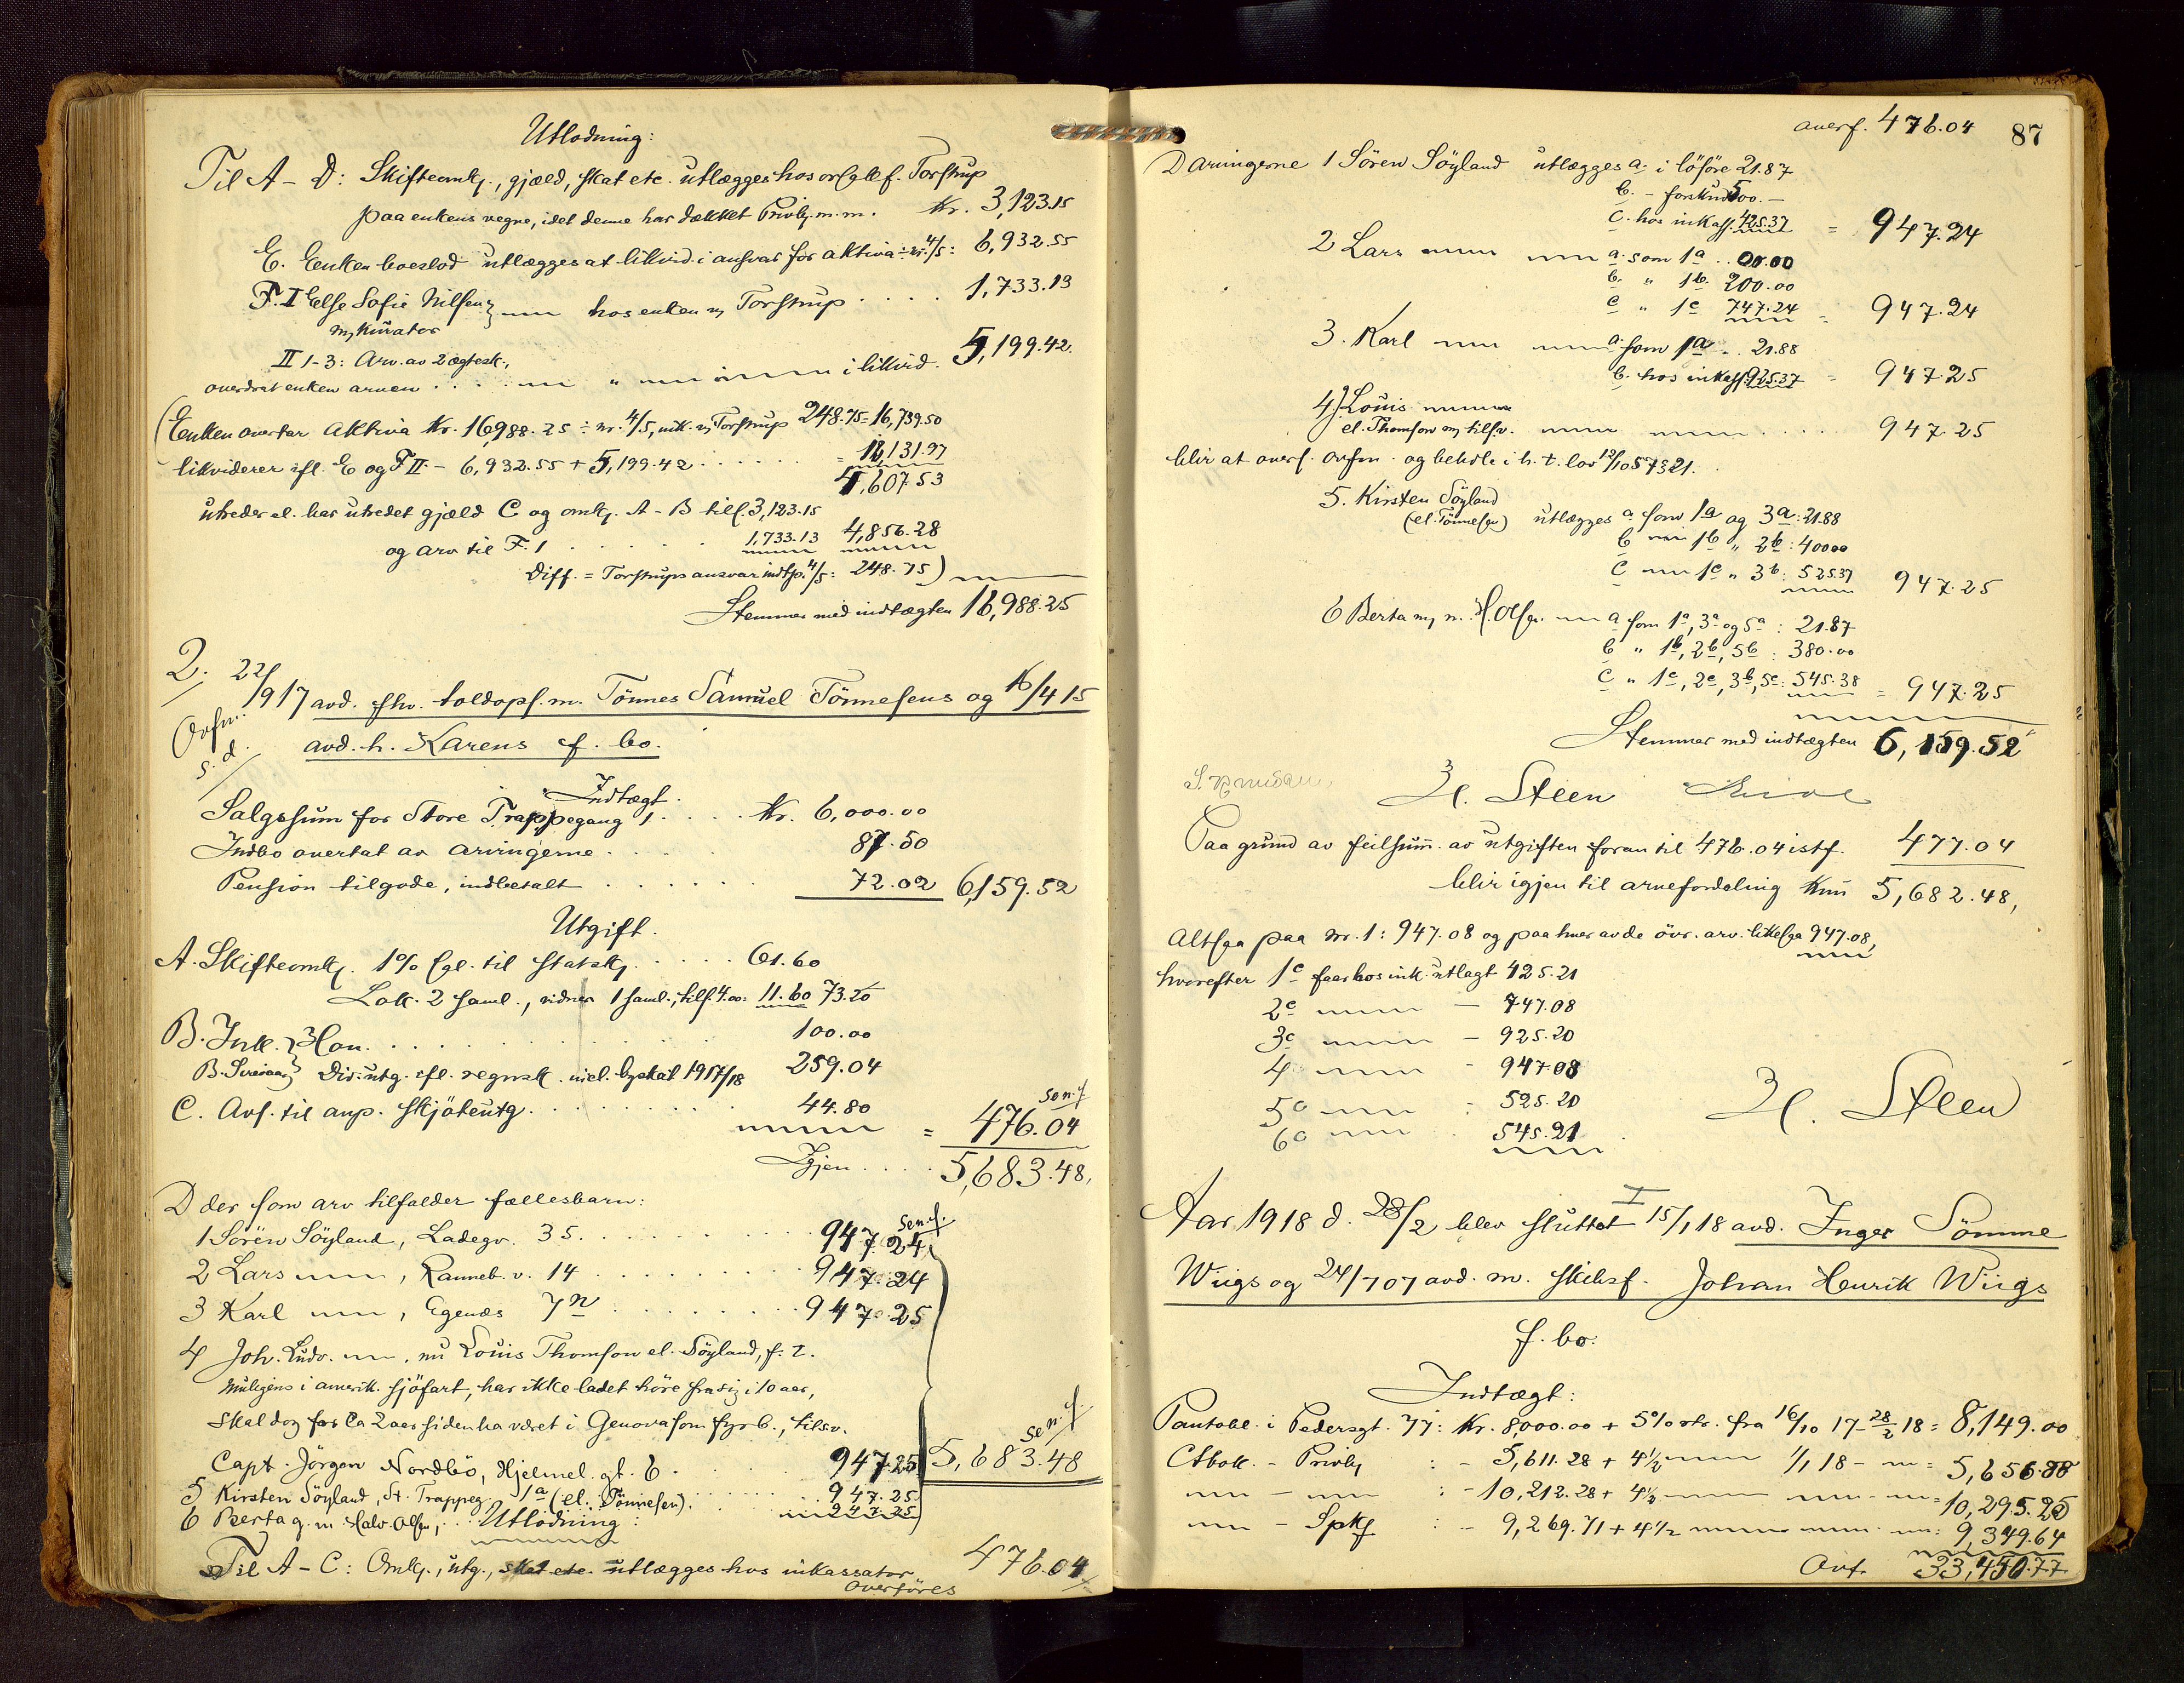 Utlodning:
Til A - D: Skifteomk., gjæld, skat etc. utlægges hos orlgkf. Torstrup
paa enkens vegne, idet denne har dækket Privby. m. m. Kr. 3,123.15
E. Enken boeslod utlægges at likvid. i ansvar for aktiva ÷ nr. 4/5: 6,932.55
F. I Else Sofie Nilsen m/ kurator hos enken v/ Torstrup . . . . 1,733.13
II 1-3: Arv. av 2 ægtesk.,
overdrat enken arven . . . . " i likvid. 5,199.42.
(Enken overtar aktiva Kr. 16,988.25 ÷ nr. 4/5, ink. v/ Torstrup 248.75 = 16,739.50
likviderer ifl. E og F II - 6,932.55 + 5,199.42 . . . . . = 12,131.97
4,607.53
utreder el. har utredet gjæld C og omk. A - B tils. 3,123.15
og arv til F. 1 . . . . . 1,733.13 4,856.28
Diff. = Torstrups ansvar indtp. 4/5: 248.75)
Stemmer med indtægten 16,988.25
2. 22/917 avd. fhv. toldops. m. Tönnes Samuel Tönnesens og 16/4 15
avd. h. Karens f. bo.
s. d.
Indtægt.
Salgssum for Store Trappegang 1 . . . . Kr. 6,000.00
Indbo overtat av arvingerne . . . 87.50
Pension tilgode, indbetalt . . . . . . 72.02 6,159.52
Utgift.
A. Skifteomk. 1% lgl. til statsk. . . . . 61.60
Lok. 2 saml., vidner 1 saml., tils. 4.00: 11.60 73.20
B. Ink. Hon. . . . . . . 100.00
Div. utg. ifl. regnsk. incl. byskat 1917/18 259.04
C. Avs. til anp. skjöteutg. . . . . . . . . 44.80
sen.f
= 476.04
Igjen . . . . 5,683.48,
D der som arv tilfalder fællesbarn:
1 Sören Söyland, Ladegv. 35. . . . . . . . . 947.24 sen.f.
2 Lars, Ranneb. v. 14 . . . . . . . . 947.24
3 Karl, Egenæs 7n . . . . . . . . 947.25
4 Joh. Ludv., nu Louis Thomson el. Söyland, f. t.
muligens i amerik. sjöfart, har ikke ladet höre fra sig i 10 aar,
skal dog for ca 2 aar siden ha været i Genova som fyrb., tilsv.
Capt. Jörgen Nordbö, Hjelmel. gt. 6 . 947.25 5,683.48 sen.f.
5 Kirsten Söyland, St. Trappeg. 1a (el. Tönnesen). . . 947.25
6 Berta g. m. Halv. Olsen, . . . 947.25
Utlodning:
Til A - C: Omk., utg., skat etc. utlægges hos inkassator 476.04
overföres
overf. 476.04 87
D arvingerne 1 Sören Söyland utlægges a. i lösöre 21.87
b. - forskud 500.-
c. hos inkass. 425.37 = 947.24
2 Lars a. som 1a . . 00.00
b. " 1b. 200.00
c " 1c 747.24 = 947.24
3. Karl a. som 1a . . 21.88
b. hos inkass. 925.37 = 947.25
4) Louis
el. Thomson m/ tilsv. . . . . 947.25
blir at overf. ovfm. og beholde i h. t. lov 12/10 57 § 21.
5. Kirsten Söyland
(el. Tönnesen) utlægges a. som 1a og 3a: 21.88
b 1b " 2b: 400.00
c 1c " 3b: 525.37 947.25
6 Berta m/ m. H. Olsen a som 1a, 3a og 5a: 21.87
b " 1b, 2b, 5b: 380.00
c " 1c, 2c, 3b, 5c: 545.38 = 947.25
Stemmer med indtægten 6,159.52
H. Steen
Paa grund av feilsum. av utgiften foran til 476.04 istf. 477.04
blir igjen til arvefordeling kun 5,682.48,
Altsaa paa nr. 1: 947.08 og paa hver av de övr. arv. likesaa 947.08,
hvorefter 1c faar hos ink. utlagt 425.21
2c — 747.08
3c - 925.20
4 - 947.08
5c : 525.20
6c . 545.21
H. Steen
Aar 1918 d. 28/2 blev sluttet I 15/1 18 avd. Inger Sömme
Wiigs og 24/7 07 avd. m. skibsf. Johan Henrik Wiigs
f. bo.
Indtægt:
Pantobl. i Pedersgt. 77: Kr. 8,000.00 + 5% rtr. fra 16/10 17 - 28/2 18 = 8,149.00
Ctbok. - Privby : - 5,611.28 + 4½ 1/1 18 - = 5,656.88
- : - 10,212.28 + 4½ = 10,295.25
- Spks : - 9,269.71 + 4½ : 9,349.64
Ovf. 33,450.77